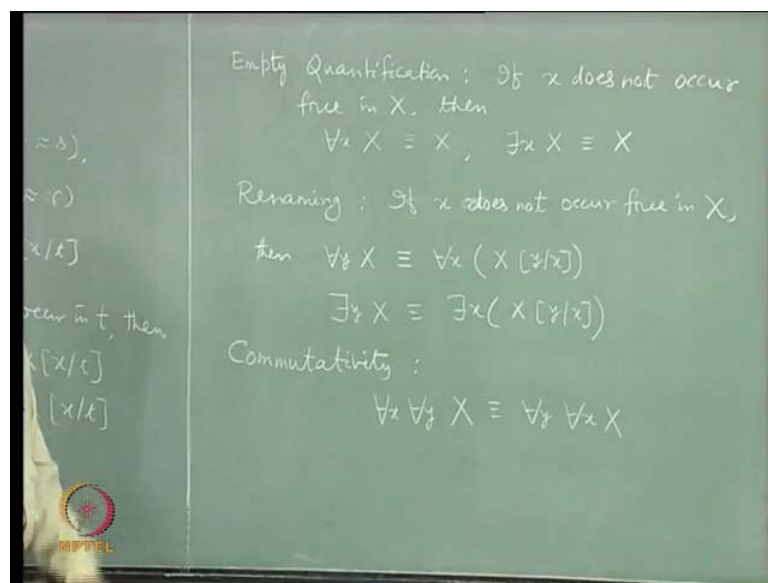 ≈ s),
≈ r)
x/t]
occur in t, then
X [x/t]
[x/t]
Empty Quantification : If x does not occur
free in X, then
∀x X ≡ X, ∃x X ≡ X
Renaming : If x does not occur free in X,
then ∀y X ≡ ∀x ( X [y/x])
∃y X ≡ ∃x ( X [y/x])
Commutativity :
∀x ∀y X ≡ ∀y ∀x X
NPTEL